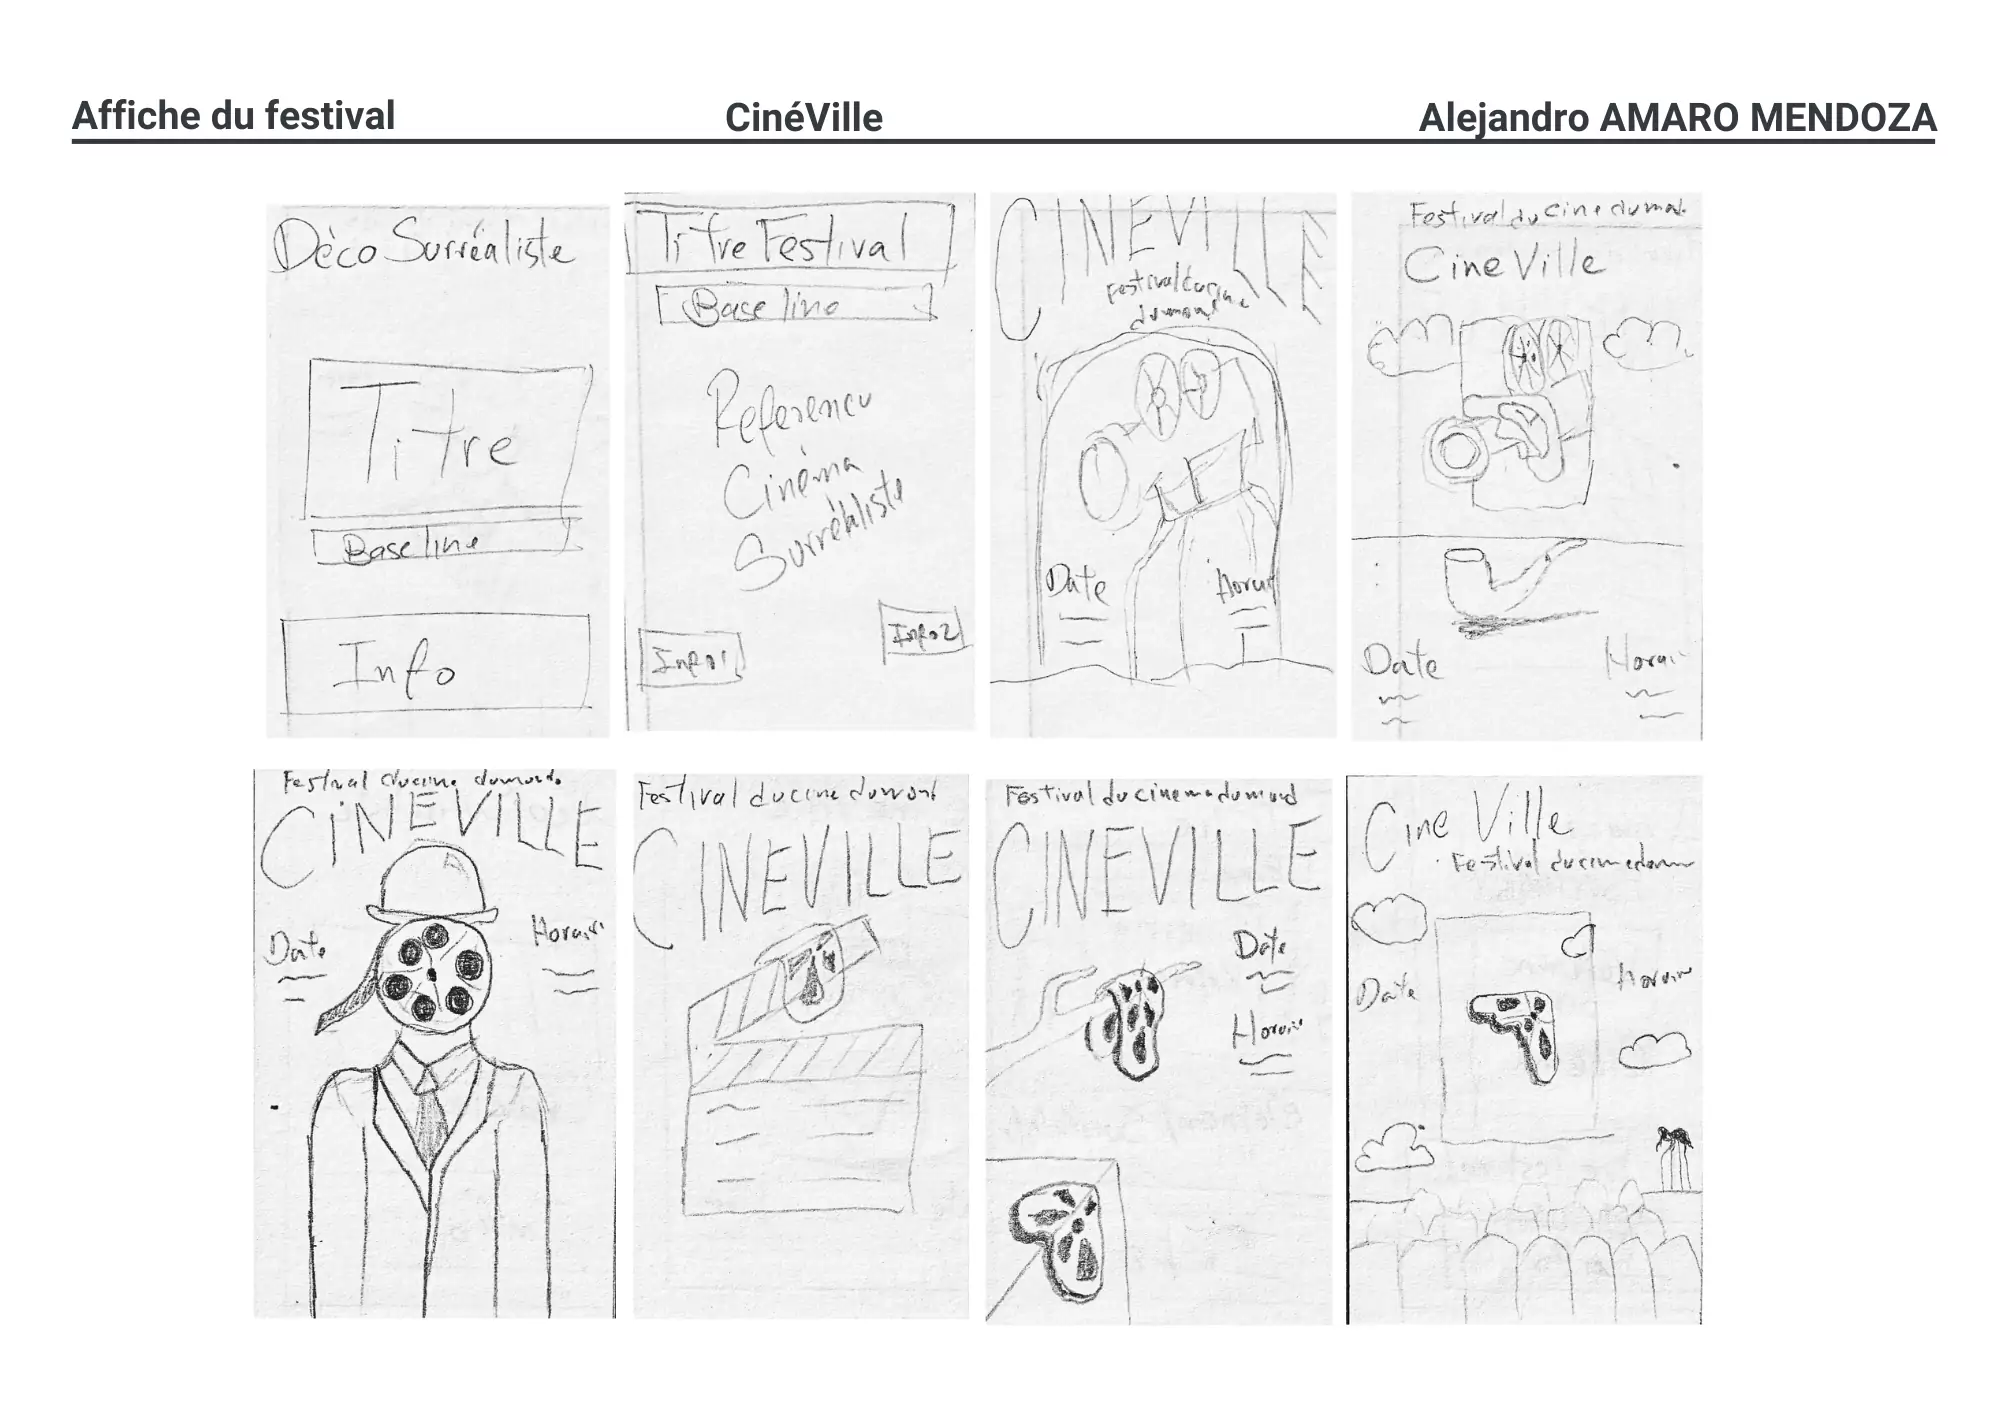 Affiche du festival
CinéVille
Alejandro AMARO MENDOZA
Dèco Surréaliste
Titre
Base line
Info
Titre Festival
Base line
Referencu
Cinéma
Surréaliste
Info1
Info2
CINEVILLE
Festival du cine
du mond
Date
Horair
Festival du Cine du mod.
Cine Ville
Date
Horair
Festival du cine du mond.
CINEVILLE
Date
Horair
Festival du cine du mond
CINEVILLE
Festival du cinema du mond
CINEVILLE
Date
Horair
Cine Ville
Festival du cinema du
Date
Horair